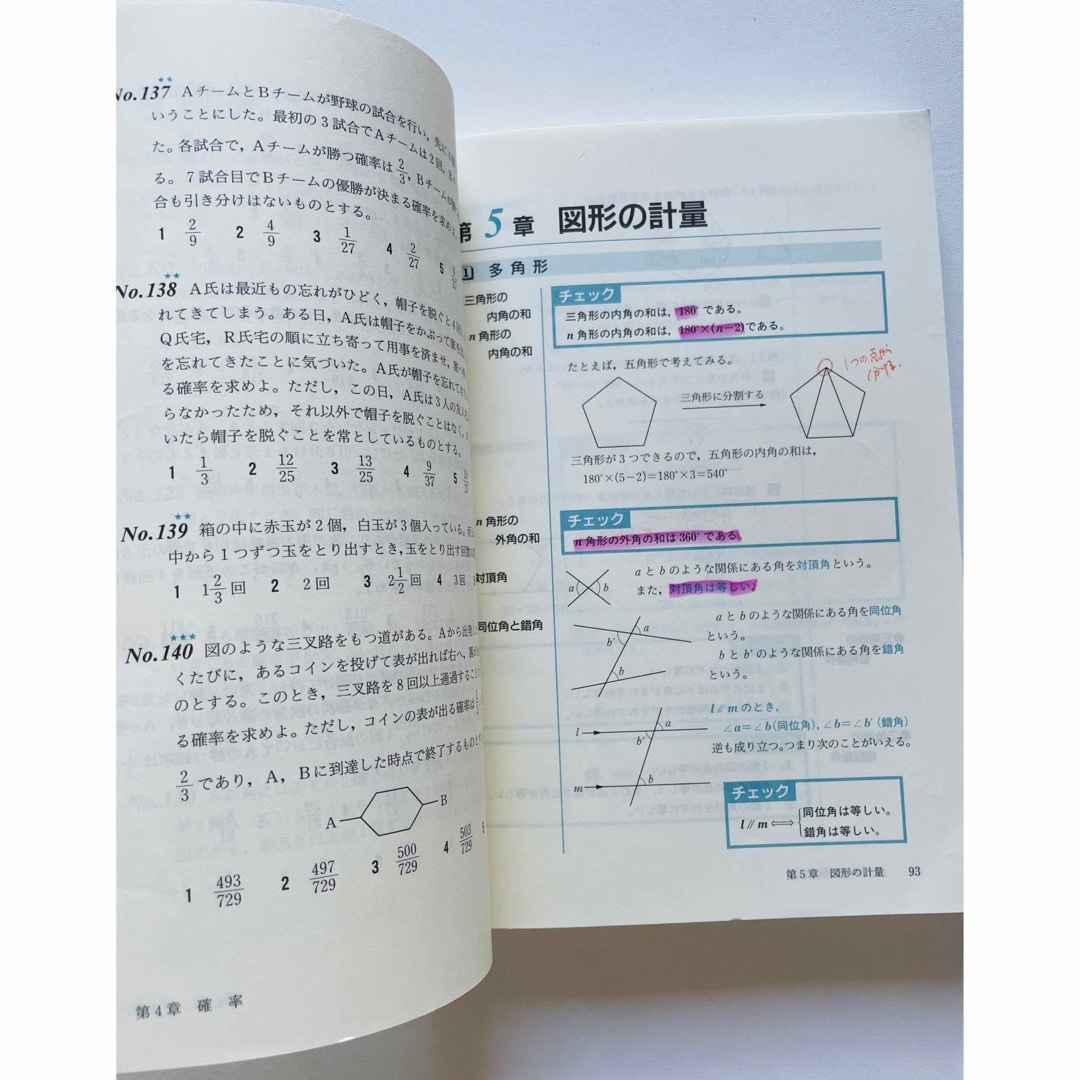 No.137 AチームとBチームが野球の試合を行い，先に
いうことにした。最初の3試合でAチームは2回，
た。各試合で，Aチームが勝つ確率は2/3，Bチームが
る。7試合目でBチームの優勝が決まる確率を求めよ
合も引き分けはないものとする。
1 2/9 2 4/9 3 1/27 4 2/27 5 4/27
No.138 A氏は最近もの忘れがひどく，帽子を脱ぐと
れてきてしまう。ある日，A氏は帽子をかぶって家を
Q氏宅，R氏宅の順に立ち寄って用事を済ませ，
を忘れてきたことに気づいた。A氏が帽子を忘れてき
る確率を求めよ。ただし，この日，A氏は3人の友人
らなかったため，それ以外で帽子を脱ぐことはなく，
いたら帽子を脱ぐことを常としているものとする。
1 1/3 2 12/25 3 13/25 4 9/37 5
No.139 箱の中に赤玉が2個，白玉が3個入っている。
中から1つずつ玉をとり出すとき，玉をとり出す回数
1 1 2/3回 2 2回 3 2 1/2回 4 3回
No.140 図のような三叉路をもつ道がある。Aから出発し
くたびに，あるコインを投げて表が出れば右へ，
のとする。このとき，三叉路を8回以上通過すること
る確率を求めよ。ただし，コインの表が出る確率は1/3
2/3であり，A，Bに到達した時点で終了するものと
A B
1 493/729 2 497/729 3 500/729 4 503/729 5
第4章 確 率
第5章 図形の計量
1 多角形
三角形の
内角の和
n角形の
内角の和
チェック
三角形の内角の和は，180°である。
n角形の内角の和は，180°×(n−2)である。
たとえば，五角形で考えてみる。
三角形に分割する
1つの点から
三角形が3つできるので，五角形の内角の和は，
180°×(5−2)=180°×3=540°
n角形の
外角の和
チェック
n角形の外角の和は360°である。
対頂角
a b
aとbのような関係にある角を対頂角という。
また，対頂角は等しい。
同位角と錯角
a
b′
b
aとbのような関係にある角を同位角
という。
bとb′のような関係にある角を錯角
という。
l
a
b′
m
b
l∥mのとき，
∠a=∠b(同位角)，∠b=∠b′(錯角)
逆も成り立つ。つまり次のことがいえる。
チェック
l∥m⟺{同位角は等しい。
錯角は等しい。
第5章 図形の計量 93